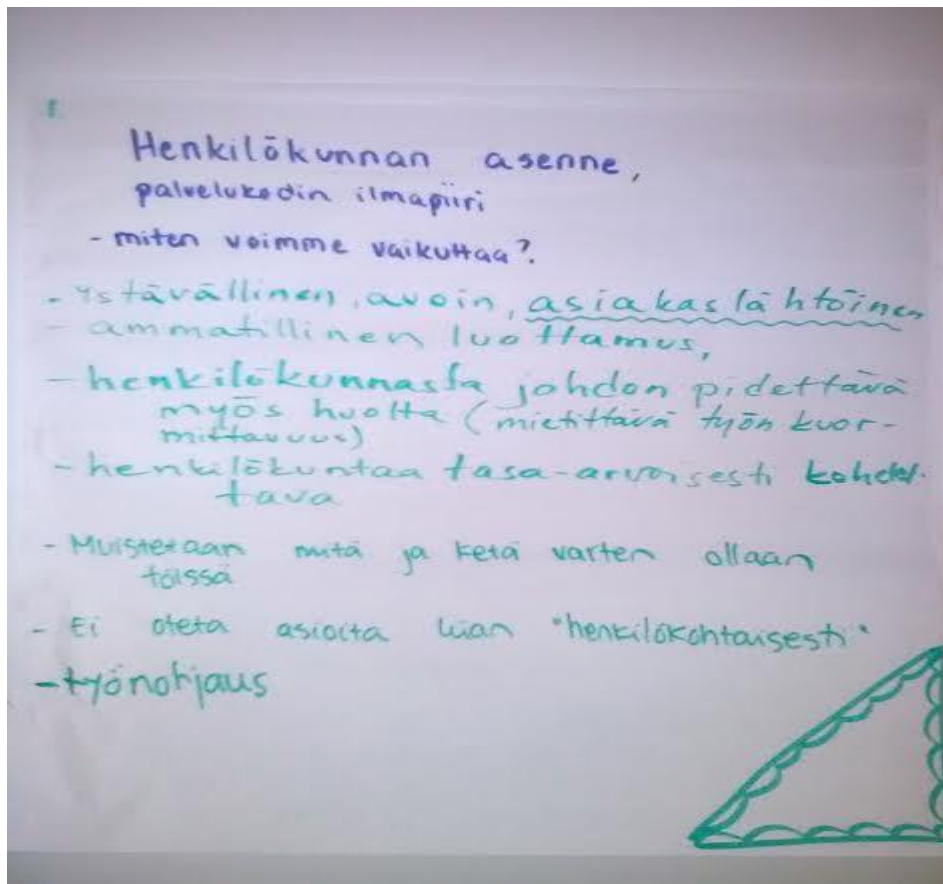 1.
Henkilökunnan asenne,
palvelukodin ilmapiiri
- miten voimme vaikuttaa?
- Ystävällinen, avoin, asiakaslähtöinen
- ammatillinen luottamus,
- henkilökunnasta johdon pidettävä
myös huolta (mietittävä työn kuor-
mittavuus)
- henkilökuntaa tasa-arvoisesti kohdel-
tava
- Muistetaan mitä ja ketä varten ollaan
töissä
- Ei oteta asioita liian "henkilökohtaisesti"
- työnohjaus